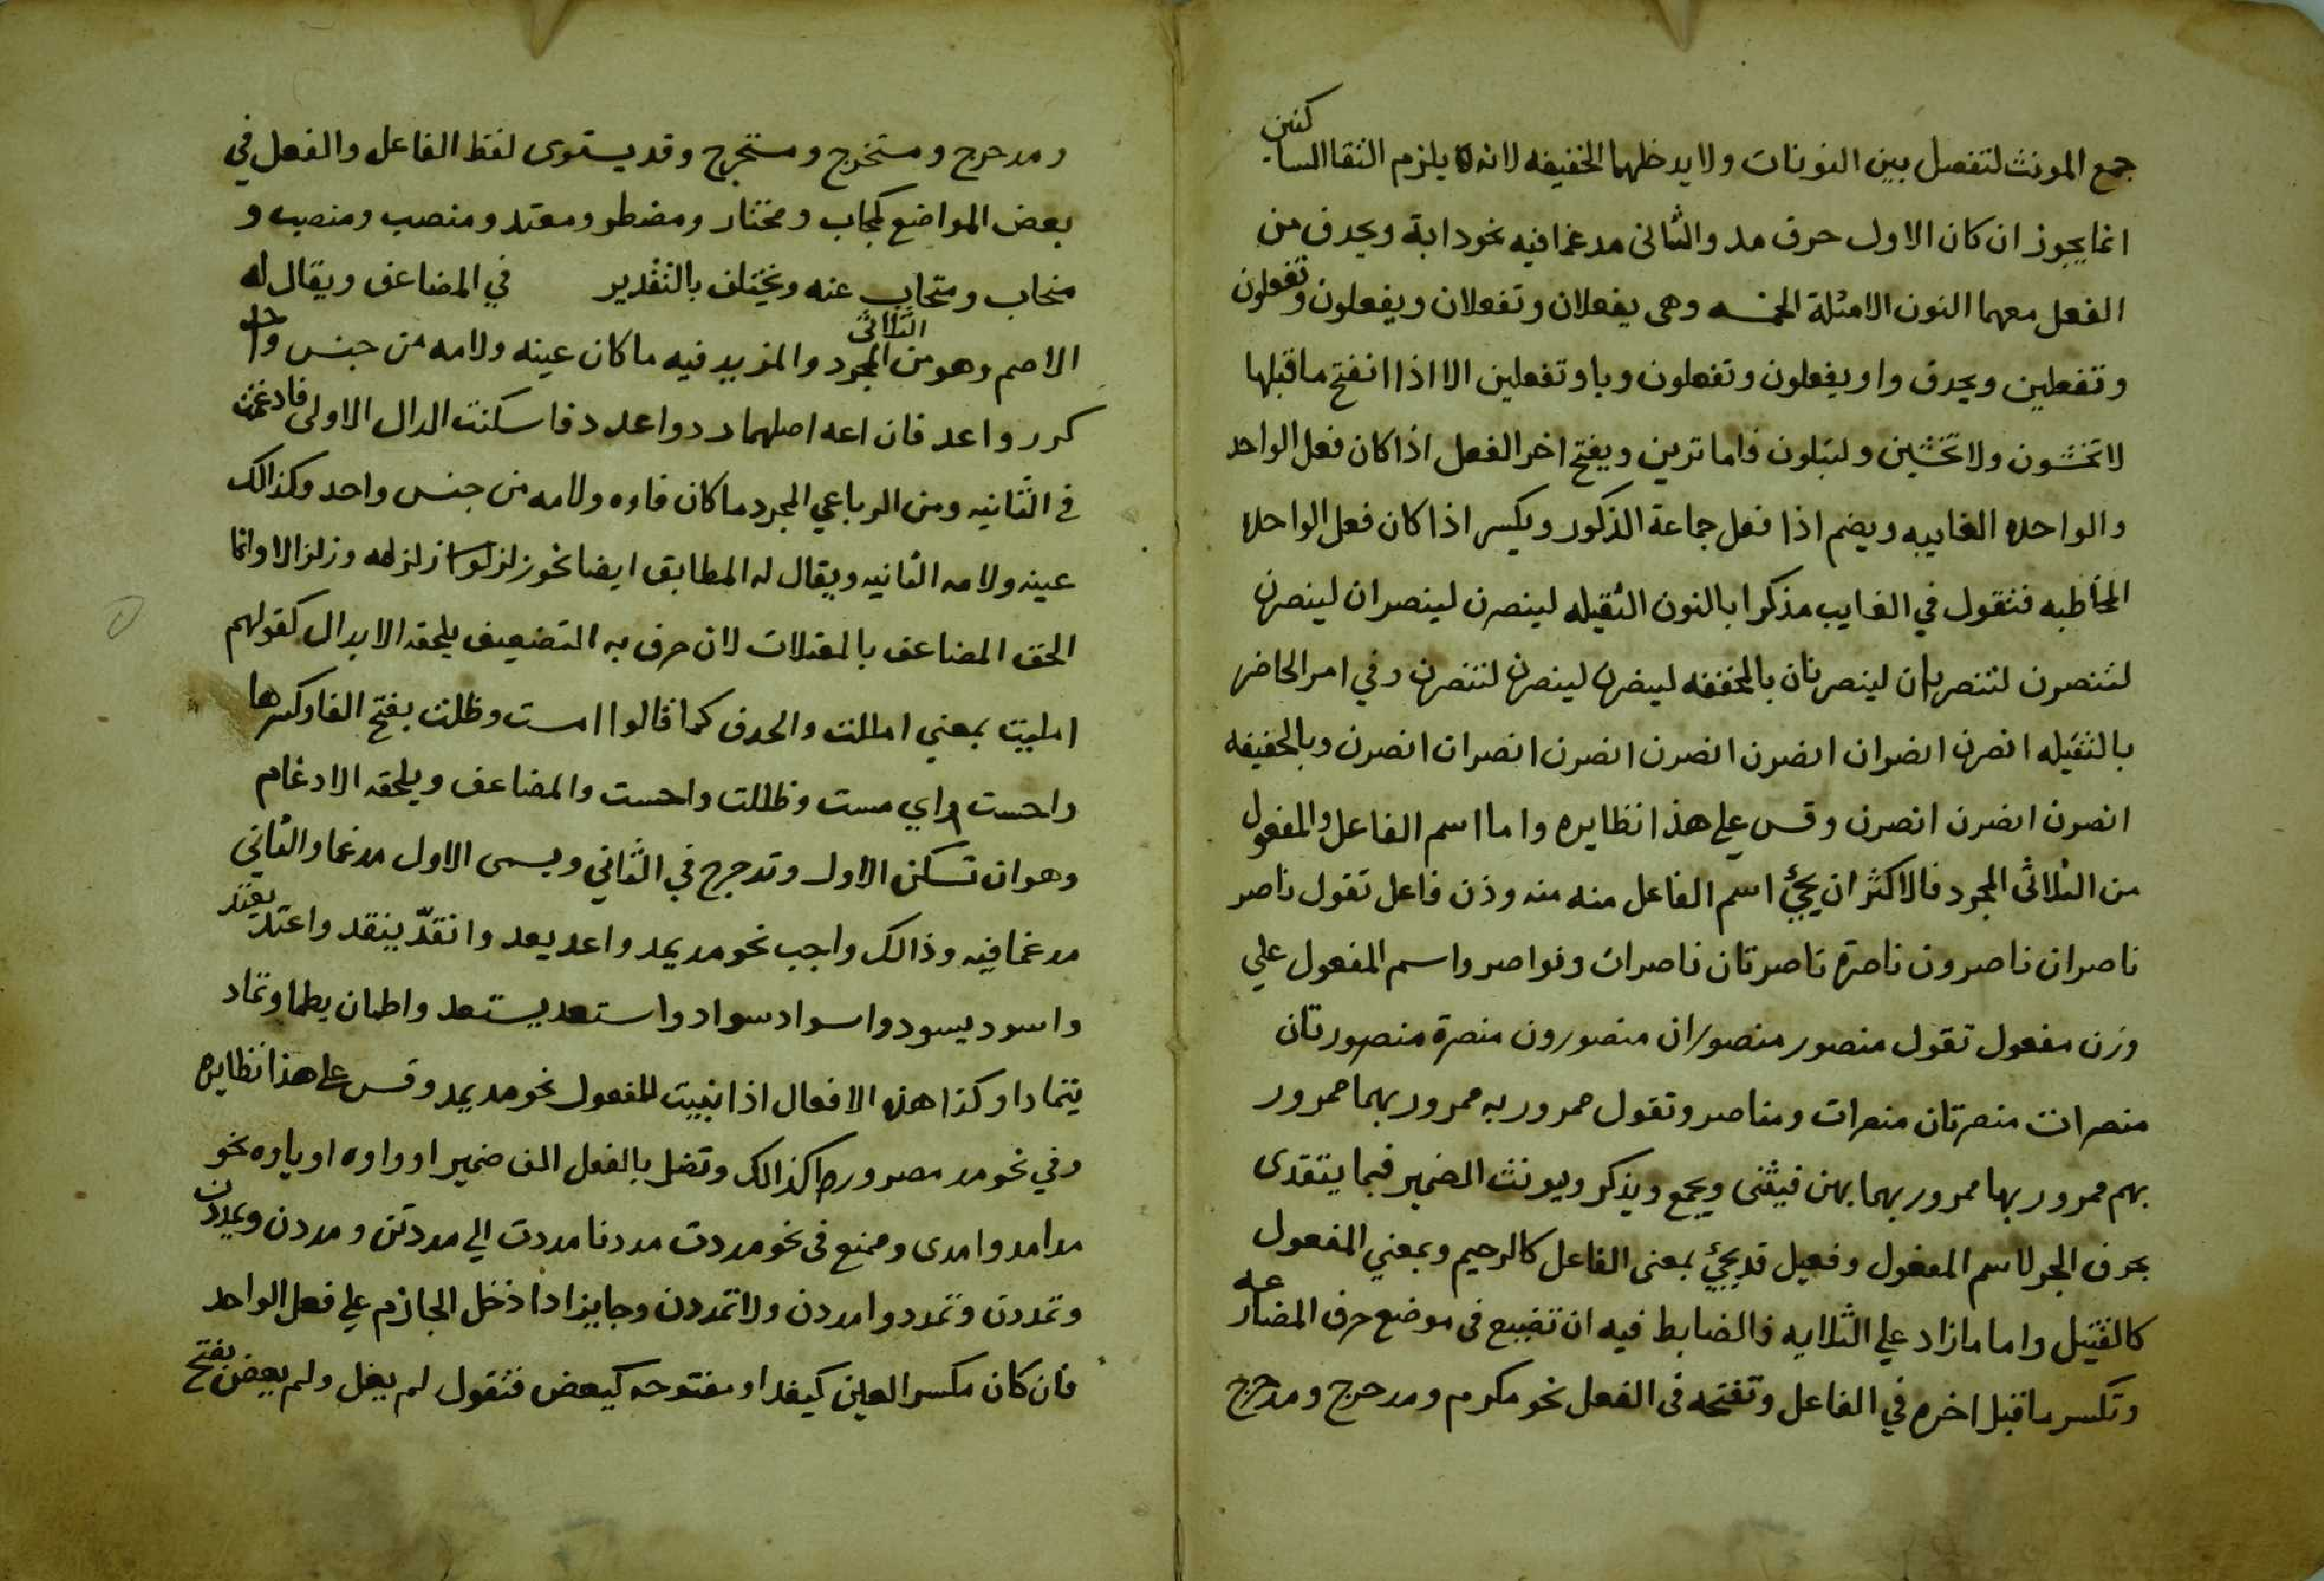 جمع المونث لتفصل بين النونات ولا يدخلهما الخفيفه لانه لا يلزم التقا الساكنين
انما يجوز ان كان الاول حرف مد والثانى مدغما فيه نحو دابة ويحدف من
الفعل معهما النون الامثلة الخمسه وهى يفعلان وتفعلان ويفعلون وتفعلون
وتفعلين ويحدف واو يفعلون وتفعلون ويا وتفعلين الا اذا انفتح ما قبلها
لا تخشون ولا تخشين ولتبلون فاما ترين ويفتح اخر الفعل اذا كان فعل الواحد
والواحده الغايبه ويضم اذا فعل جماعة الذكور ويكسر اذا كان فعل الواحده
المخاطبه فتقول في الغايب مذكرا بالنون الثقيله لينصرن لينصران لينصرن
لتنصرن لتنصران لينصرنان بالمخففه لينصرن لينصرن لتنصرن وفي امر الحاضر
بالثقيله انصرن انصران انصرن انصرن انصرن انصران انصرن وبالخفيفه
انصرن انصرن انصرن وقس علي هذا نظايره واما اسم الفاعل والمفعول
من الثلاثى المجرد فالاكثر ان يجئ اسم الفاعل منه منه وذن فاعل تقول ناصر
ناصران ناصرون ناصرة ناصرتان ناصرات ونواصر واسم المفعول علي
وزن مفعول تقول منصور منصوران منصورون منصرة منصورتان
منصرات منصرتان منصرات ومناصر وتقول ممرور به ممرور بهما ممرور
بهم ممرور بها ممرور بهما بهن فيثنى ويجمع ويذكر ويونث الضمير فيما يتعدى
بحرف الجر لاسم المفعول وفعيل قد يجئ بمعنى الفاعل كالرحيم وبمعني المفعول
كالقتيل واما مازاد علي الثلاثه فالضابط فيه ان تضيع فى موضع حرف المضارعه
وتكسر ما قبل اخره في الفاعل وتفتحه فى الفعل نحو مكرم ومدحرج ومدحرج
ومدحرج ومستخرج ومستخرج وقد يستوى لفظ الفاعل والفعل في
بعض المواضع كمجاب ومختار ومضطر ومعتد ومنصب ومنصب و
منجاب ومتجاب عنه ويختلف بالتقدير في المضاعف ويقال له
الاصم وهو من الثلاثى المجرد والمزيد فيه ما كان عينه ولامه من جنس واحد
كرر واعد فان اعه اصلهما ردد واعدد فاسكنت الدال الاولى فادغمت
في الثانيه ومن الرباعي المجرد ما كان فاوه ولامه من جنس واحد وكذالك
عينه ولامه الثانيه ويقال له المطابق ايضا نحو زلزل زلزله وزلزالا وانما
الحق المضاعف بالمعتلات لان حرف به التضعيف يلحقه الابدال كقولهم
امليت بمعني امللت والحدف كما قالوا امست وظلت بفتح الفا وكسرها
واحست واي مست وظللت واحست والمضاعف ويلحقه الادغام
وهو ان تسكن الاول وتدجرج في الثاني ويسمى الاول مدغما والثاني
مدغما فيه وذالك واجب نحو مد يمد واعد يعد وانقدّ ينقد واعتد يعتد
واسود يسود واسواد سواد واستعد يستعد واطمان يطما وتماد
يتماد وكذا هذه الافعال اذا بنيت للمفعول نحو مد يمد وقس علي هذا نظايره
وفي نحو مد مصدر وركذالك وتصل بالفعل الف ضمير او واوه او ياوه نحو
مدا مدوا مدى وممنع فى نحو مددت مددنا مددت الي مددتن ومددن ويمددن
وتمددن وتمدد وامددن ولا تمددن وجايز اذا ادخل الجازم علي فعل الواحد
فان كان مكسر العين كيفد او مفتوحه كيعض فتقول لم يفل ولم يعض بفتح